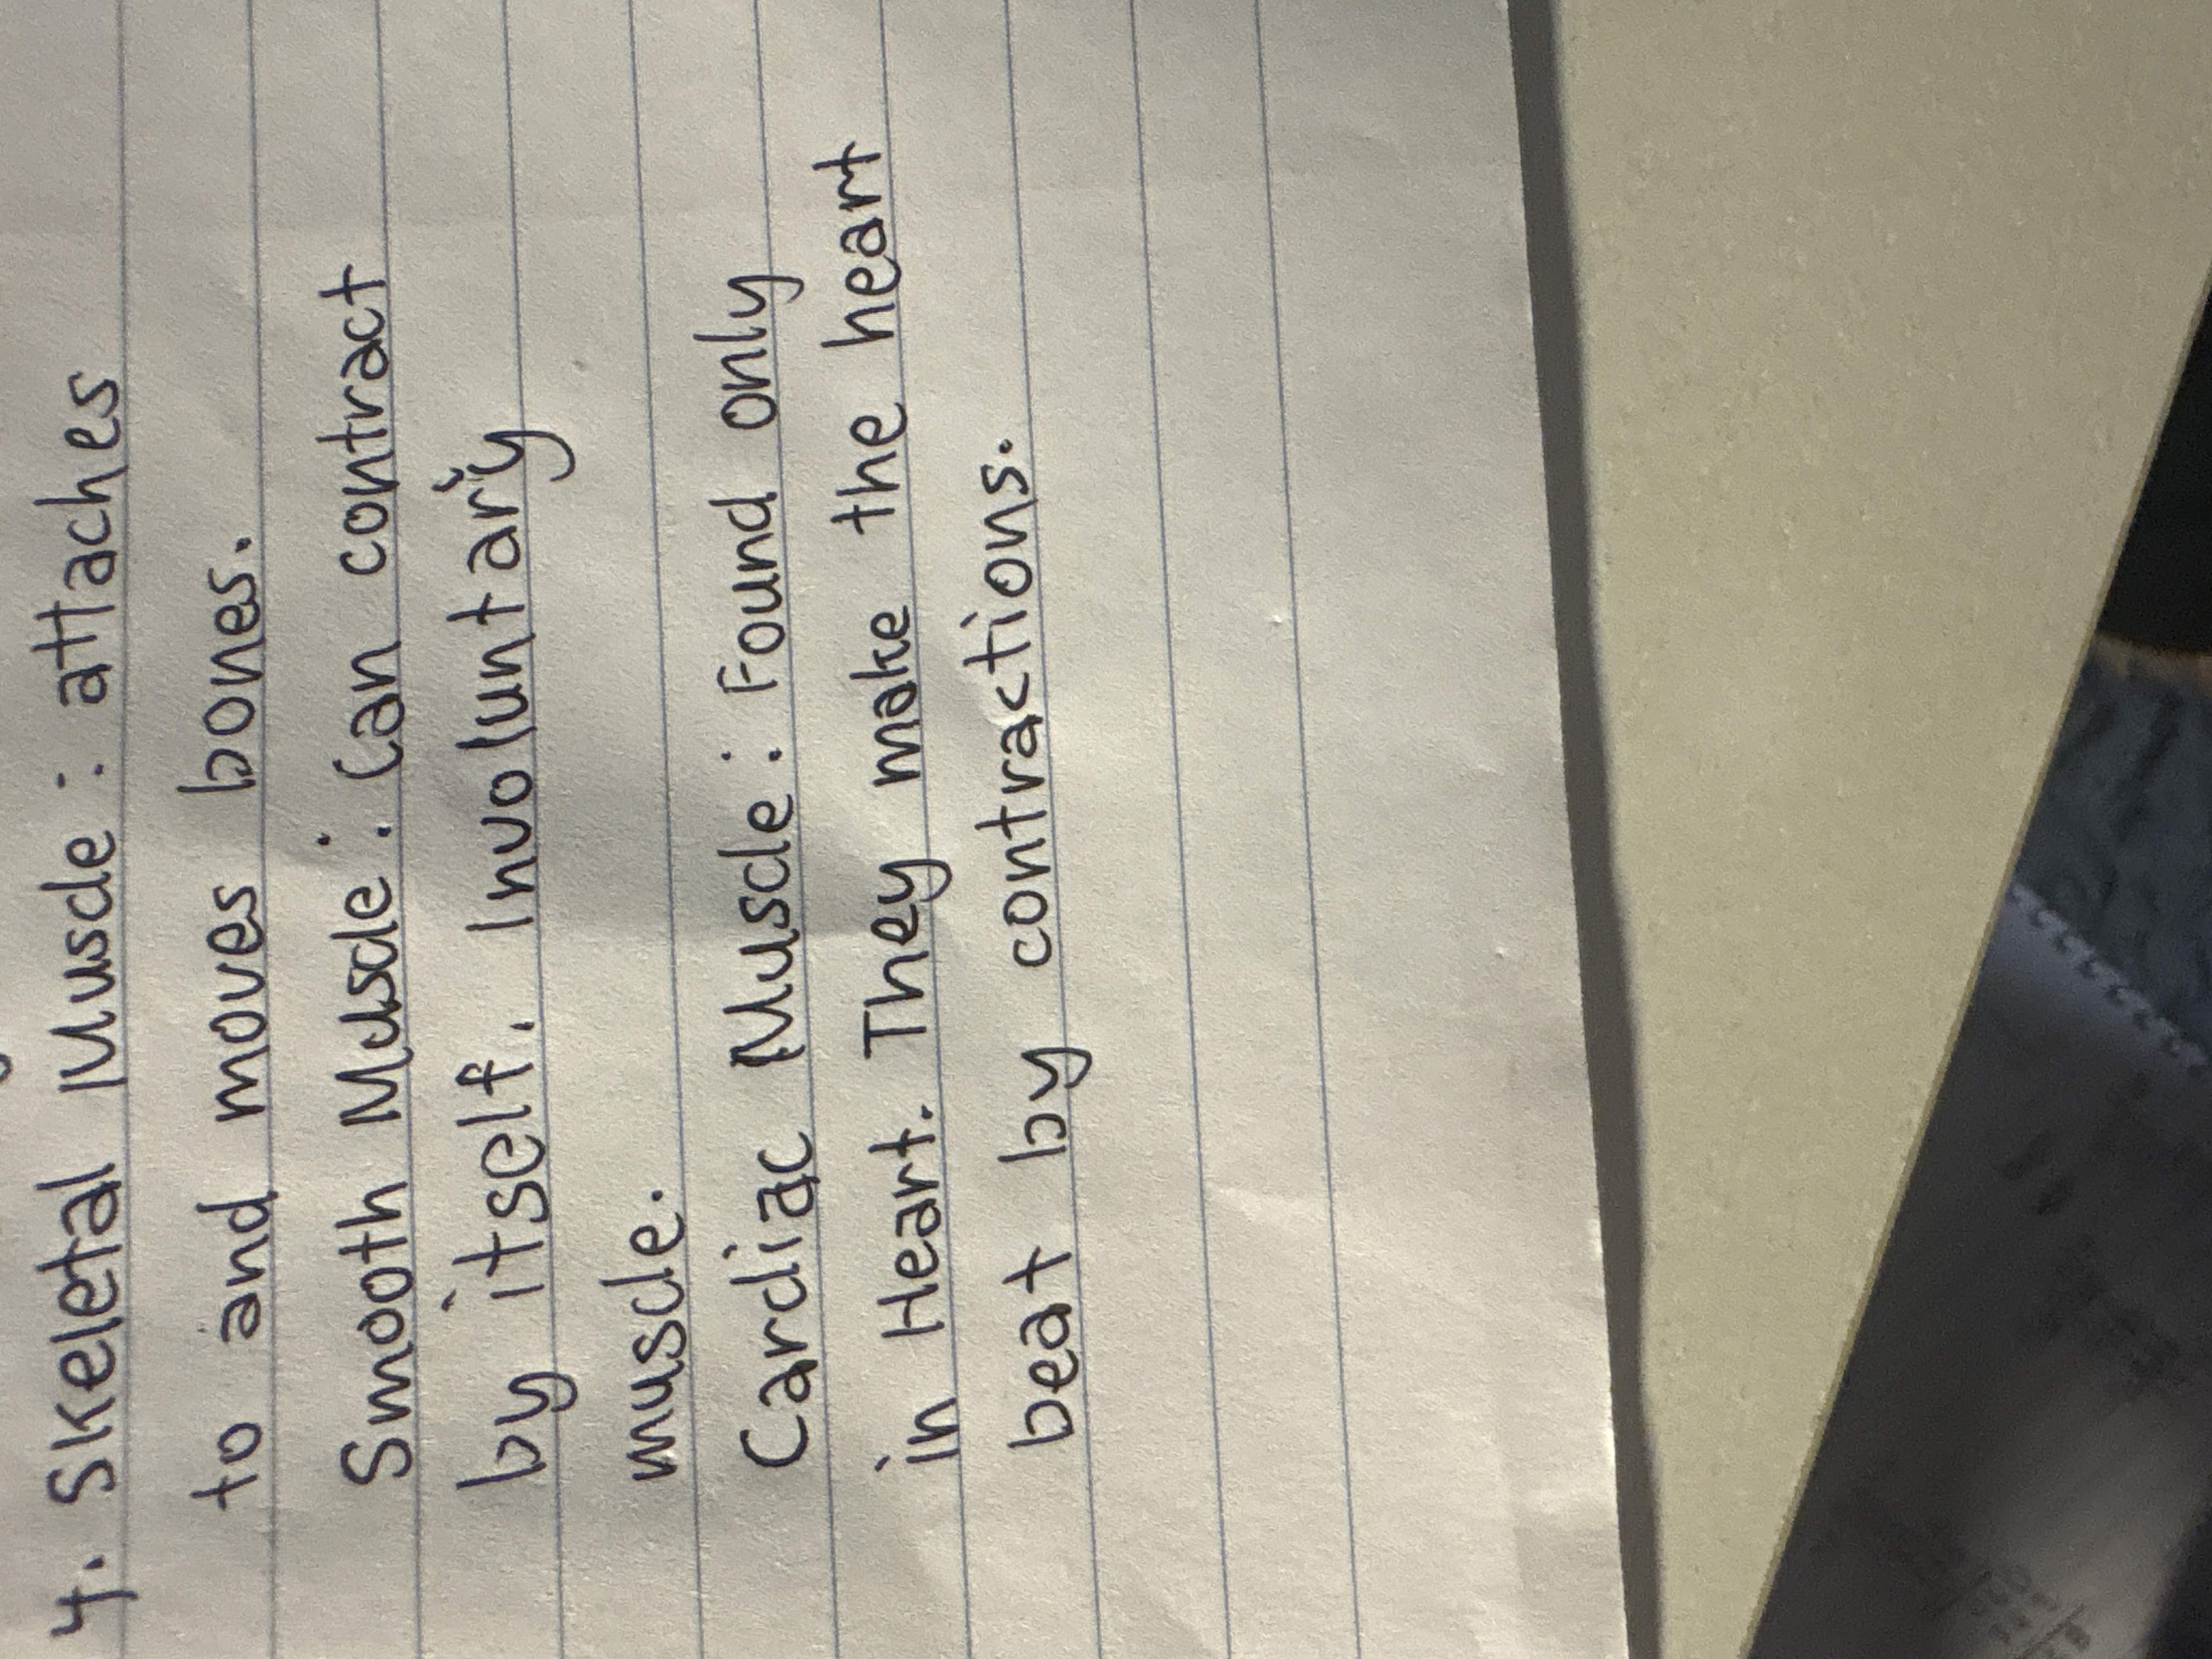 4. Skeletal Muscle : attaches
to and moves bones.
Smooth Muscle : Can contract
by itself. Involuntary
muscle.
Cardiac Muscle : Found only
in Heart. They make the heart
beat by contractions.